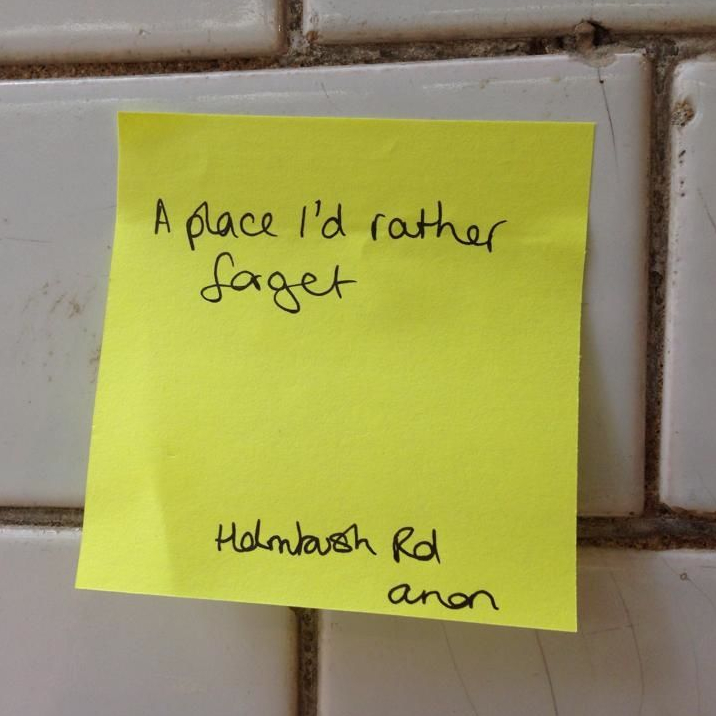 A place I'd rather
forget
Holmbush Rd
anon